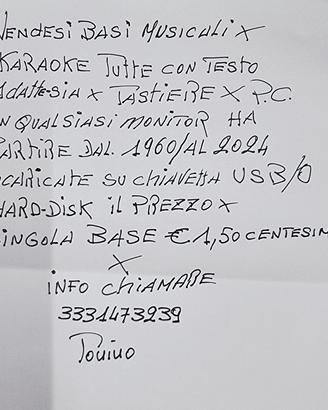 VENDESI BASI MUSICALI X
KARAOKE TUTTE CON TESTO
AdATTE-SIA X TASTIERE X P.C.
IN QUALSIASI MONITOR HA
PARTIRE DAL. 1960/AL 2024
SCARICATE SU CHIAVETTA USB/O
HARD-DISK iL PREZZO X
SINGOLA BASE € 1,50 CENTESIM
X
INFO CHIAMARE
3331473239
Tonino